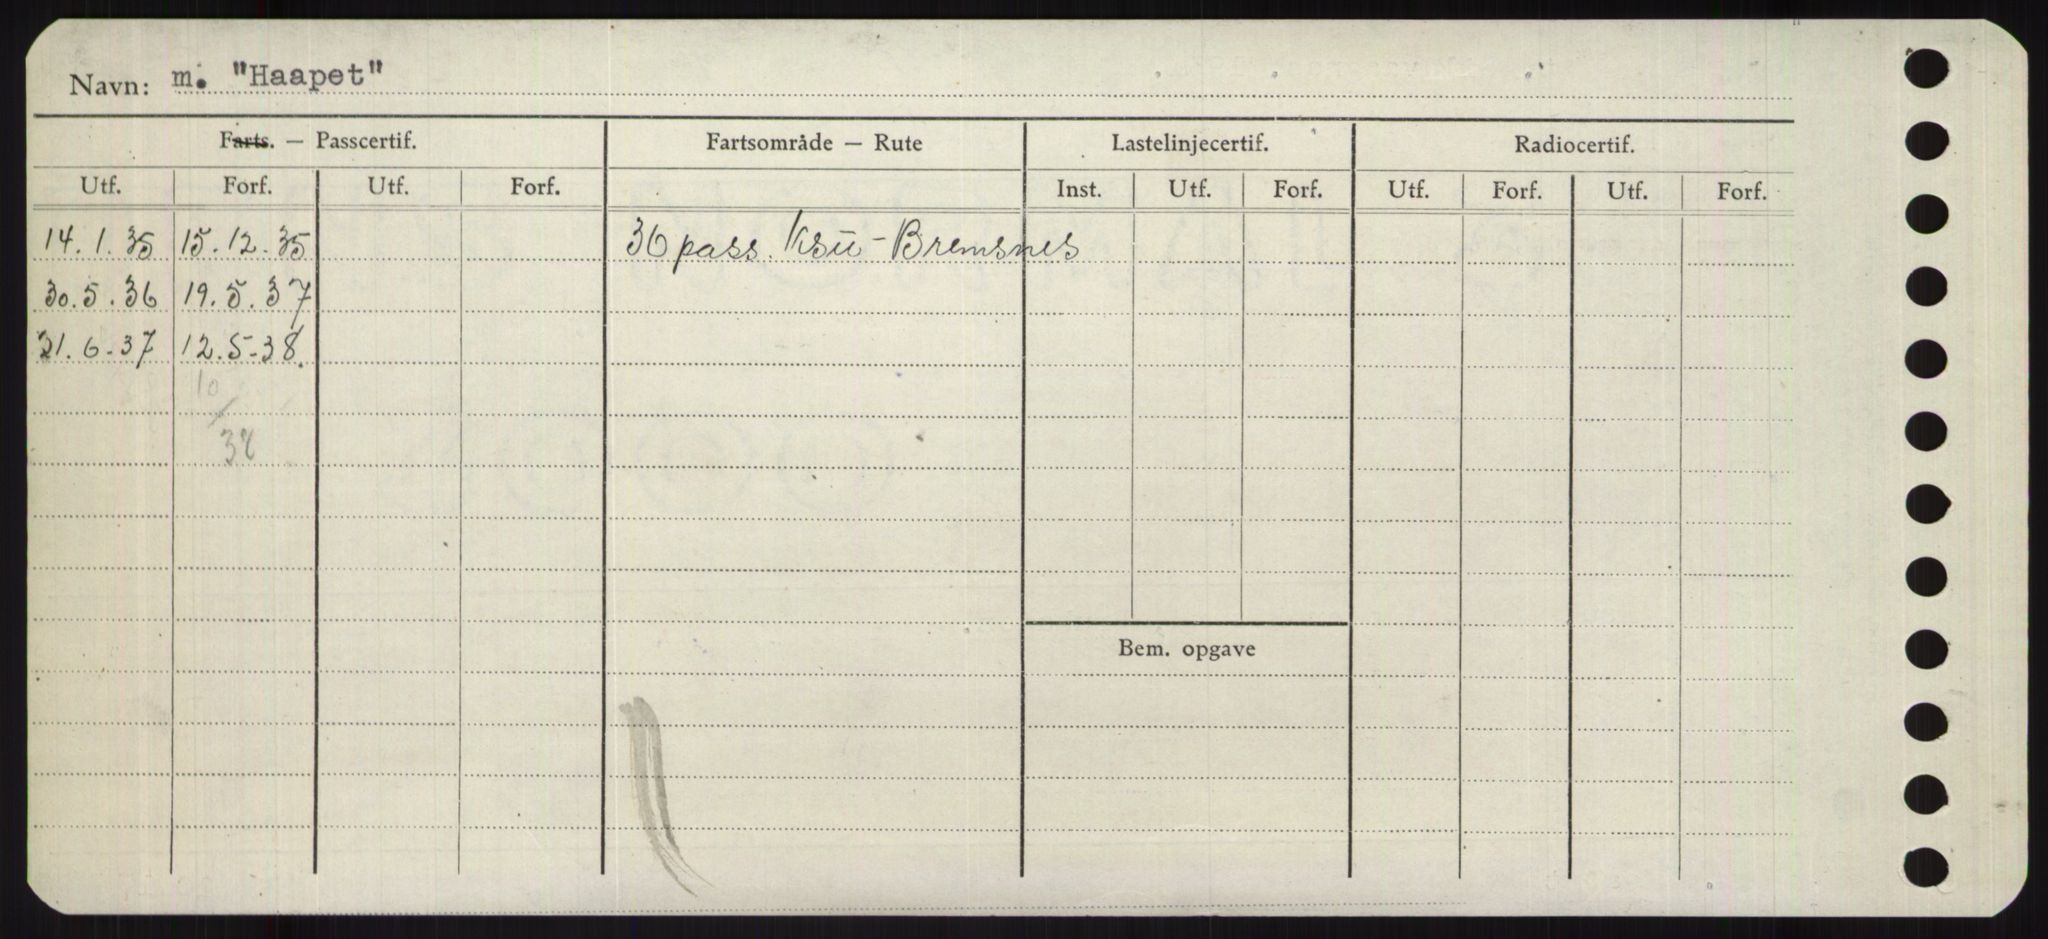 Navn: m. "Haapet"
Farts. — Passcertif. Fartsområde — Rute Lastelinjecertif. Radiocertif.
Utf. Forf. Utf. Forf. Inst. Utf. Forf. Utf. Forf. Utf. Forf.
14.1.35 15.12.35 36 pass. Ksu - Bremsnes
30.5.36 19.5.37
21.6-37 12.5-38
10/38
Bem. opgave